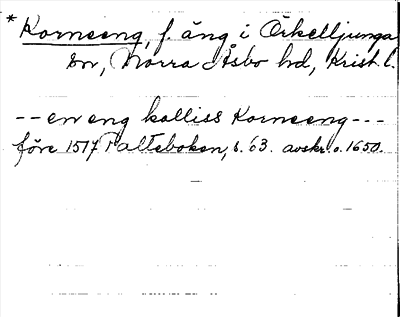 * Korneeng, f. äng i Örkelljunga
sn, Norra Åsbo hd, Krist. l.
-- en eng kalliss Korneeng ---
före 1517 Palteboken, s. 63. avskr. o. 1650.